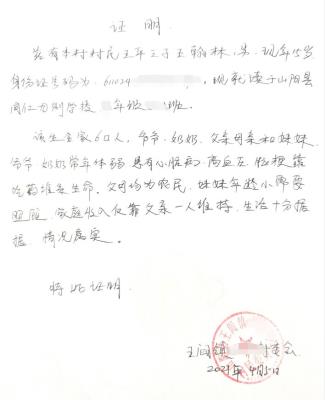 证明
兹有本村村民王年三子王翰林,男,现年15岁
身份证号码为:611024    ,现就读于山阳县
  年级  班。
该生全家6口人,爷爷、奶奶、父亲母亲和妹妹
爷爷、奶奶常年体弱,患有心脏病、高血压、
吃药维持生命,父母均为农民,妹妹年龄小需要
照顾,家庭收入仅靠父亲一人维持,生活十分拮
据,情况属实。
特此证明
王阎镇  村委会
2021年9月5日